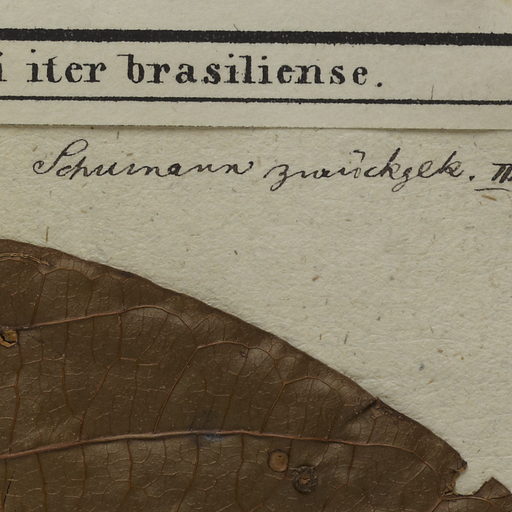 i iter brasiliense.
Schumann zurückgek. III